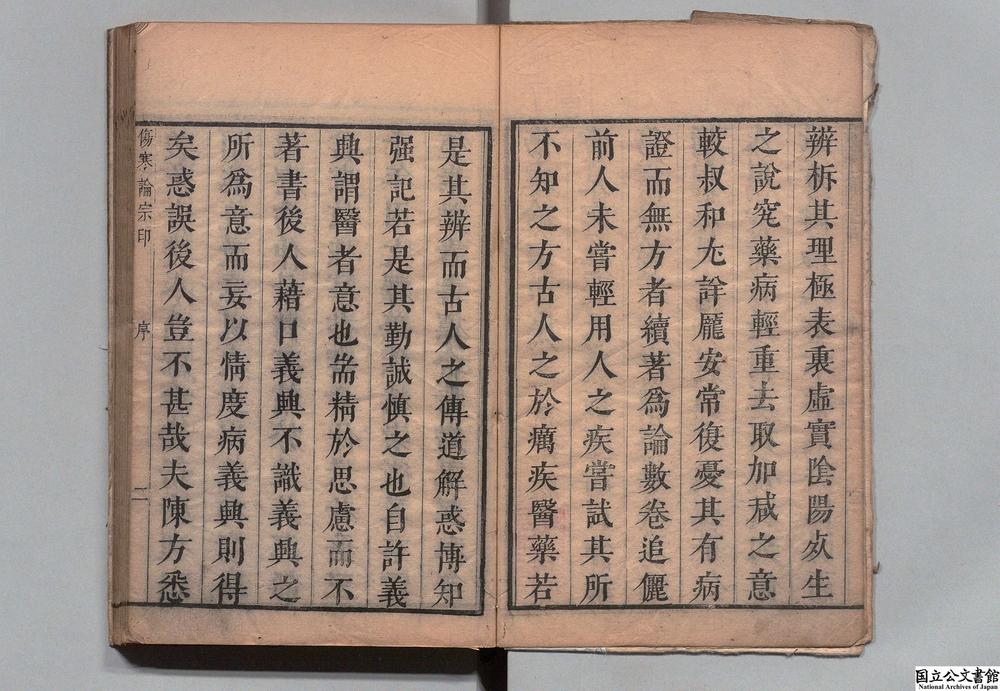 辨柝其理極表裏虛實陰陽死生
之說究藥病輕重去取加減之意
較叔和尤詳龐安常復憂其有病
證而無方者續著為論數卷追儷
前人未嘗輕用人之疾嘗試其所
不知之方古人之於癘疾醫藥若
是其辨而古人之傳道解惑博知
强記若是其勤誠慎之也自許義
興謂醫者意也耑精於思慮而不
著書後人藉口義興不識義興之
所為意而妄以情度病義興則得
矣惑誤後人豈不甚哉夫陳方悉
傷寒論宗印 序 二
国立公文書館
National Archives of Japan